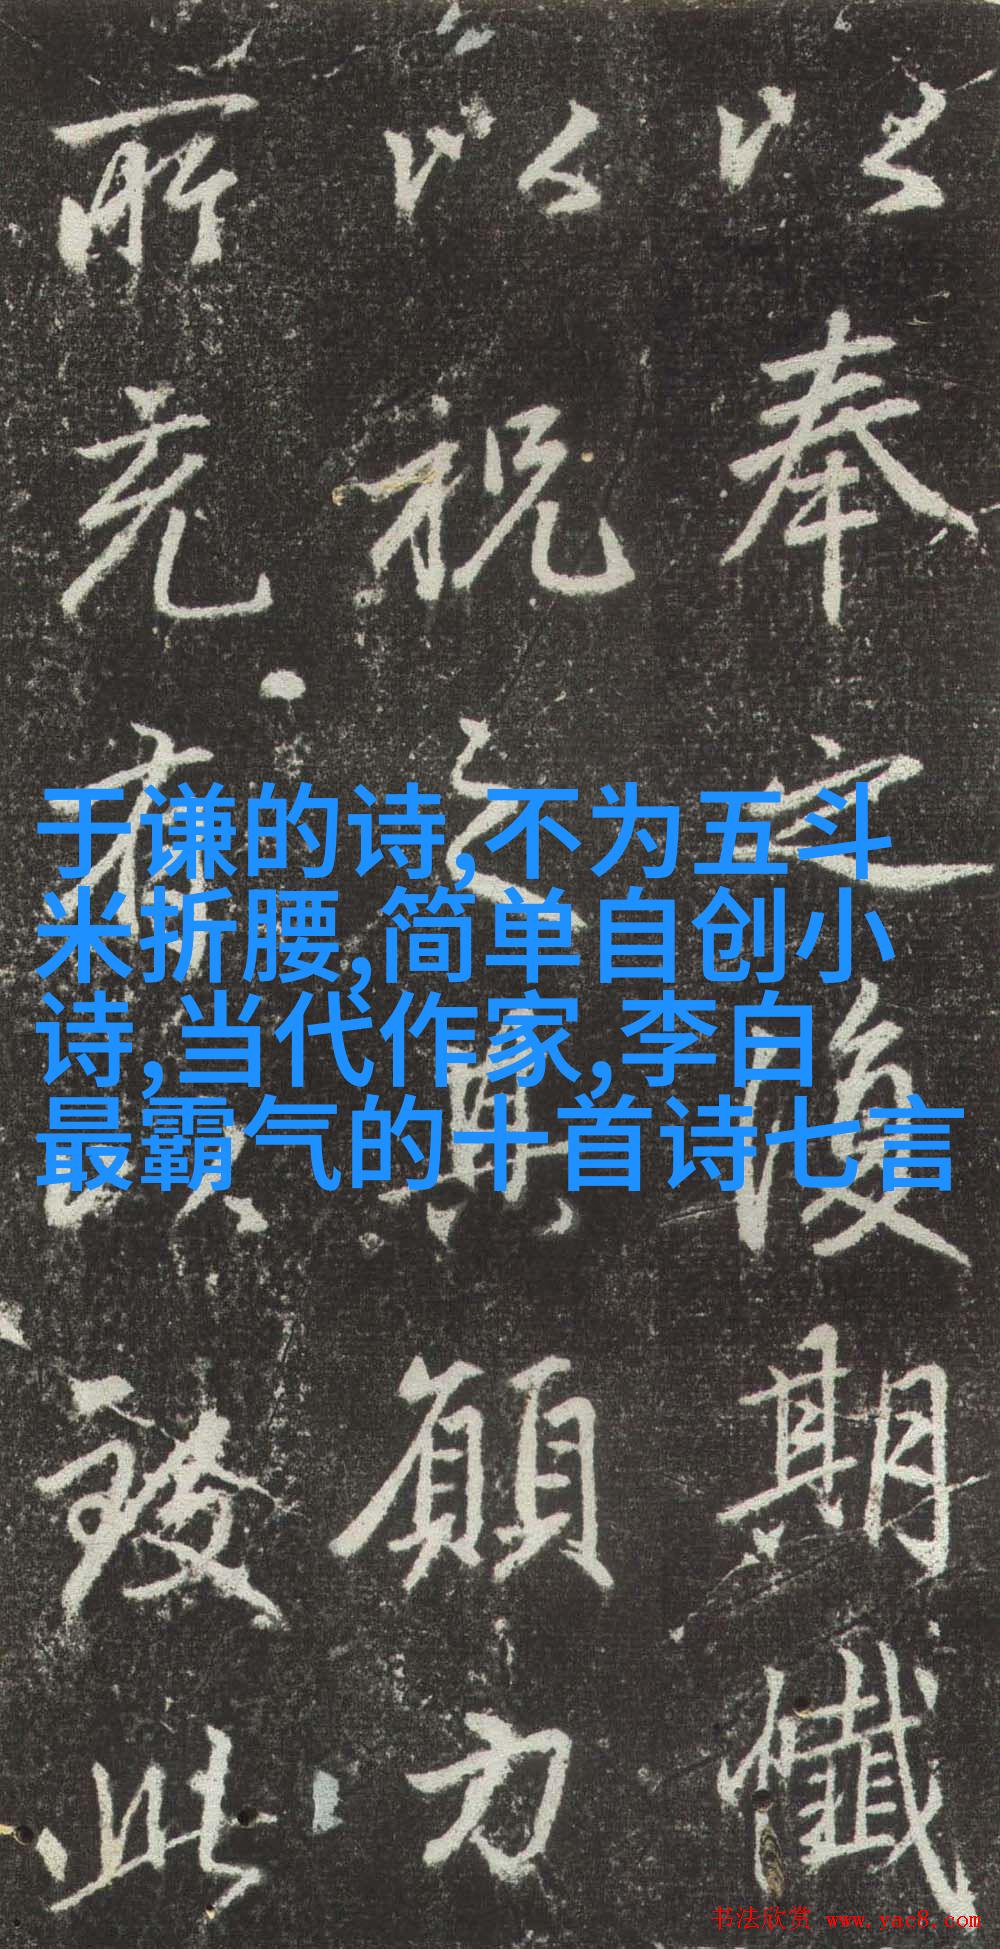 以奉之後期懺
以祝之願力
所有以致此
于谦的诗,不为五斗
米折腰,简单自创小
诗,当代作家,李白
最霸气的十首诗七言
书法欣赏 www.yac8.com